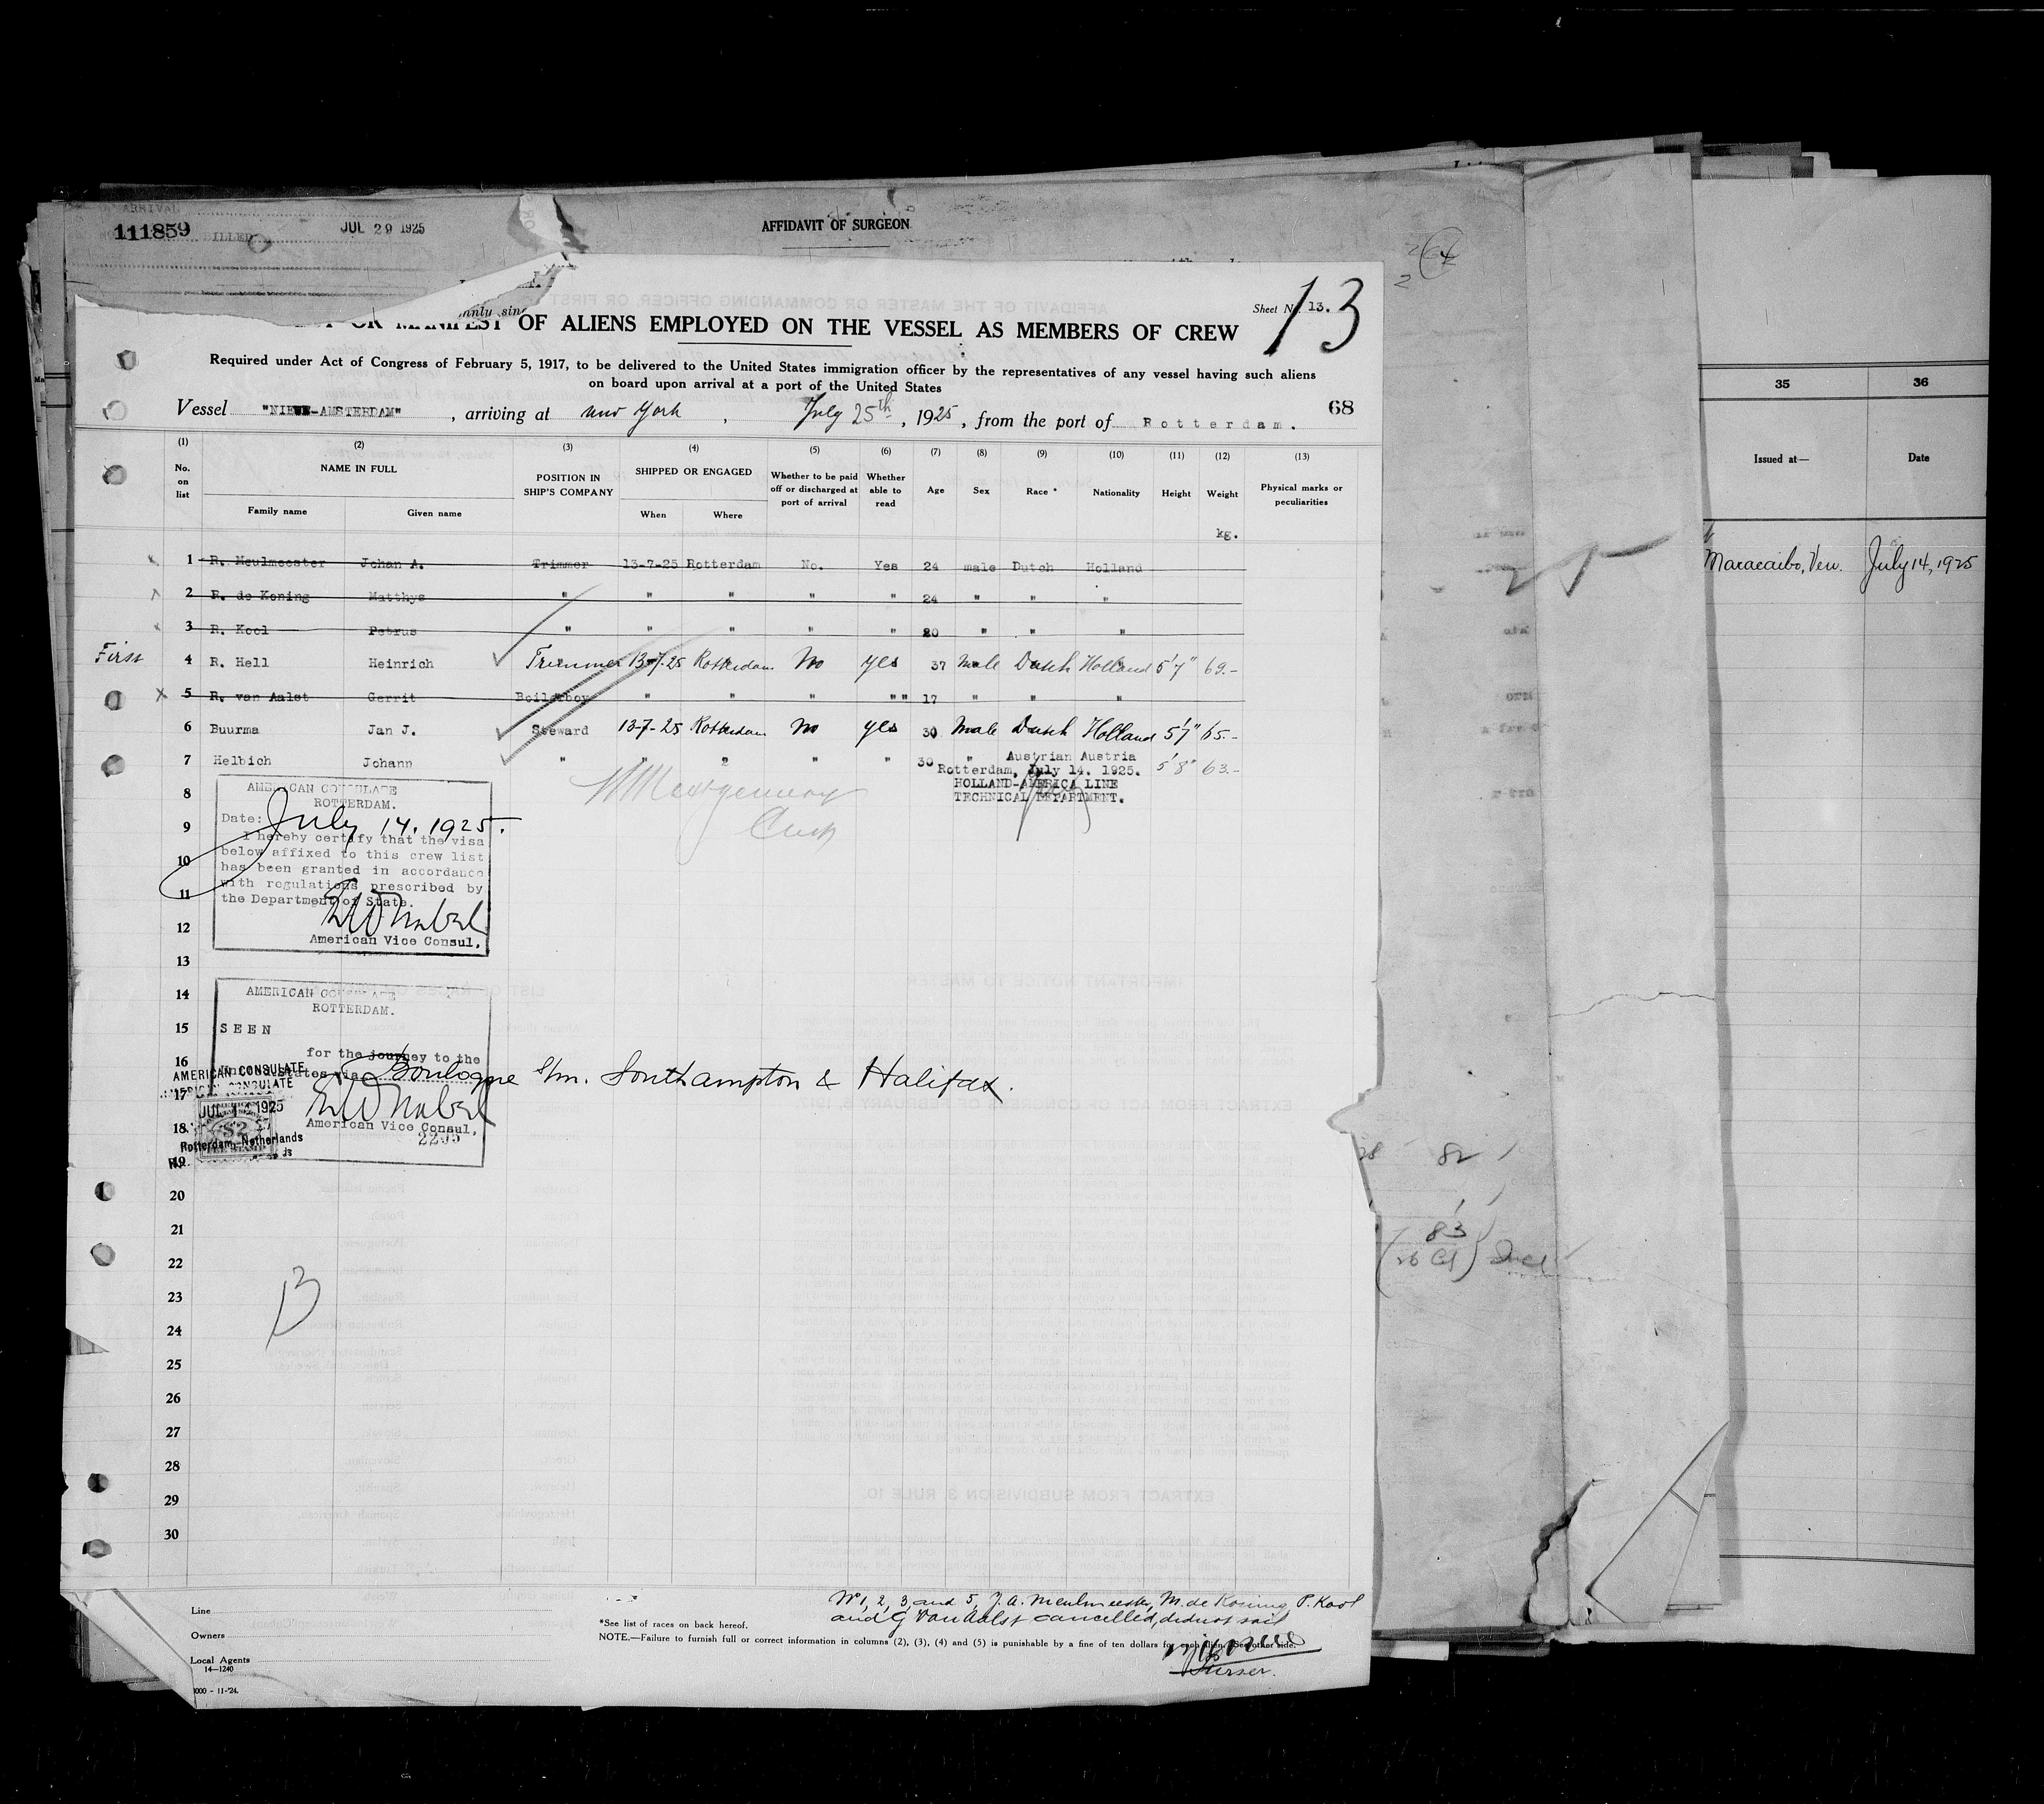 ARRIVAL
111859
BILLED
JUL 29 1925
AFFIDAVIT OF SURGEON
Sheet No. 13.
13
OR MANIFEST OF ALIENS EMPLOYED ON THE VESSEL AS MEMBERS OF CREW
Required under Act of Congress of February 5, 1917, to be delivered to the United States immigration officer by the representatives of any vessel having such aliens
on board upon arrival at a port of the United States
Vessel "NIEUW-AMSTERDAM", arriving at New York, July 25th, 1925, from the port of Rotterdam.
68
(1) (2) (3) (4) (5) (6) (7) (8) (9) (10) (11) (12) (13)
No. on list NAME IN FULL POSITION IN SHIP'S COMPANY SHIPPED OR ENGAGED Whether to be paid off or discharged at port of arrival Whether able to read Age Sex Race * Nationality Height Weight Physical marks or peculiarities
Family name Given name When Where
kg.
1 R. Meulmeester Johan A. Trimmer 13-7-25 Rotterdam No. Yes 24 male Dutch Holland
2 R. de Koning Matthys " " " " " 24 " " "
3 R. Kool Petrus " " " " " 20 " " "
First 4 R. Hell Heinrich Trimmer 13-7-25 Rotterdam No yes 37 Male Dutch Holland 5'7" 69.-
x 5 R. van Aalst Gerrit Boilerboy " " " " " 17 " " "
6 Buurma Jan J. Steward 13-7-25 Rotterdam No yes 30 Male Dutch Holland 5'7" 65.-
7 Helbich Johann " " " " " 30 " Austrian Austria 5'8" 63.-
Rotterdam, July 14. 1925.
HOLLAND-AMERICA LINE
TECHNICAL DEPARTMENT.
8
AMERICAN CONSULATE
ROTTERDAM.
Date: July 14. 1925.
9
I hereby certify that the visa
below affixed to this crew list
10
has been granted in accordance
with regulations prescribed by
11
the Department of State.
12
American Vice Consul.
13
14
AMERICAN CONSULATE
ROTTERDAM.
15
SEEN
for the journey to the
16
United States via Boulogne s/m. Southampton & Halifax.
AMERICAN CONSULATE
17
JUL 14 1925
18
American Vice Consul.
2205
Rotterdam-Netherlands
19
20
21
22
23
13
24
25
26
27
28
29
30
Line
Owners
Local Agents
14—1240
*See list of races on back hereof.
NOTE.—Failure to furnish full or correct information in columns (2), (3), (4) and (5) is punishable by a fine of ten dollars for each alien. See other side.
No 1, 2, 3, and 5, J. A. Meulmeester, M. de Koning, P. Kool
and G Van Aalst cancelled, did not sail
Purser.
35 36
Issued at— Date
Maracaibo, Ven. July 14, 1925
82
83